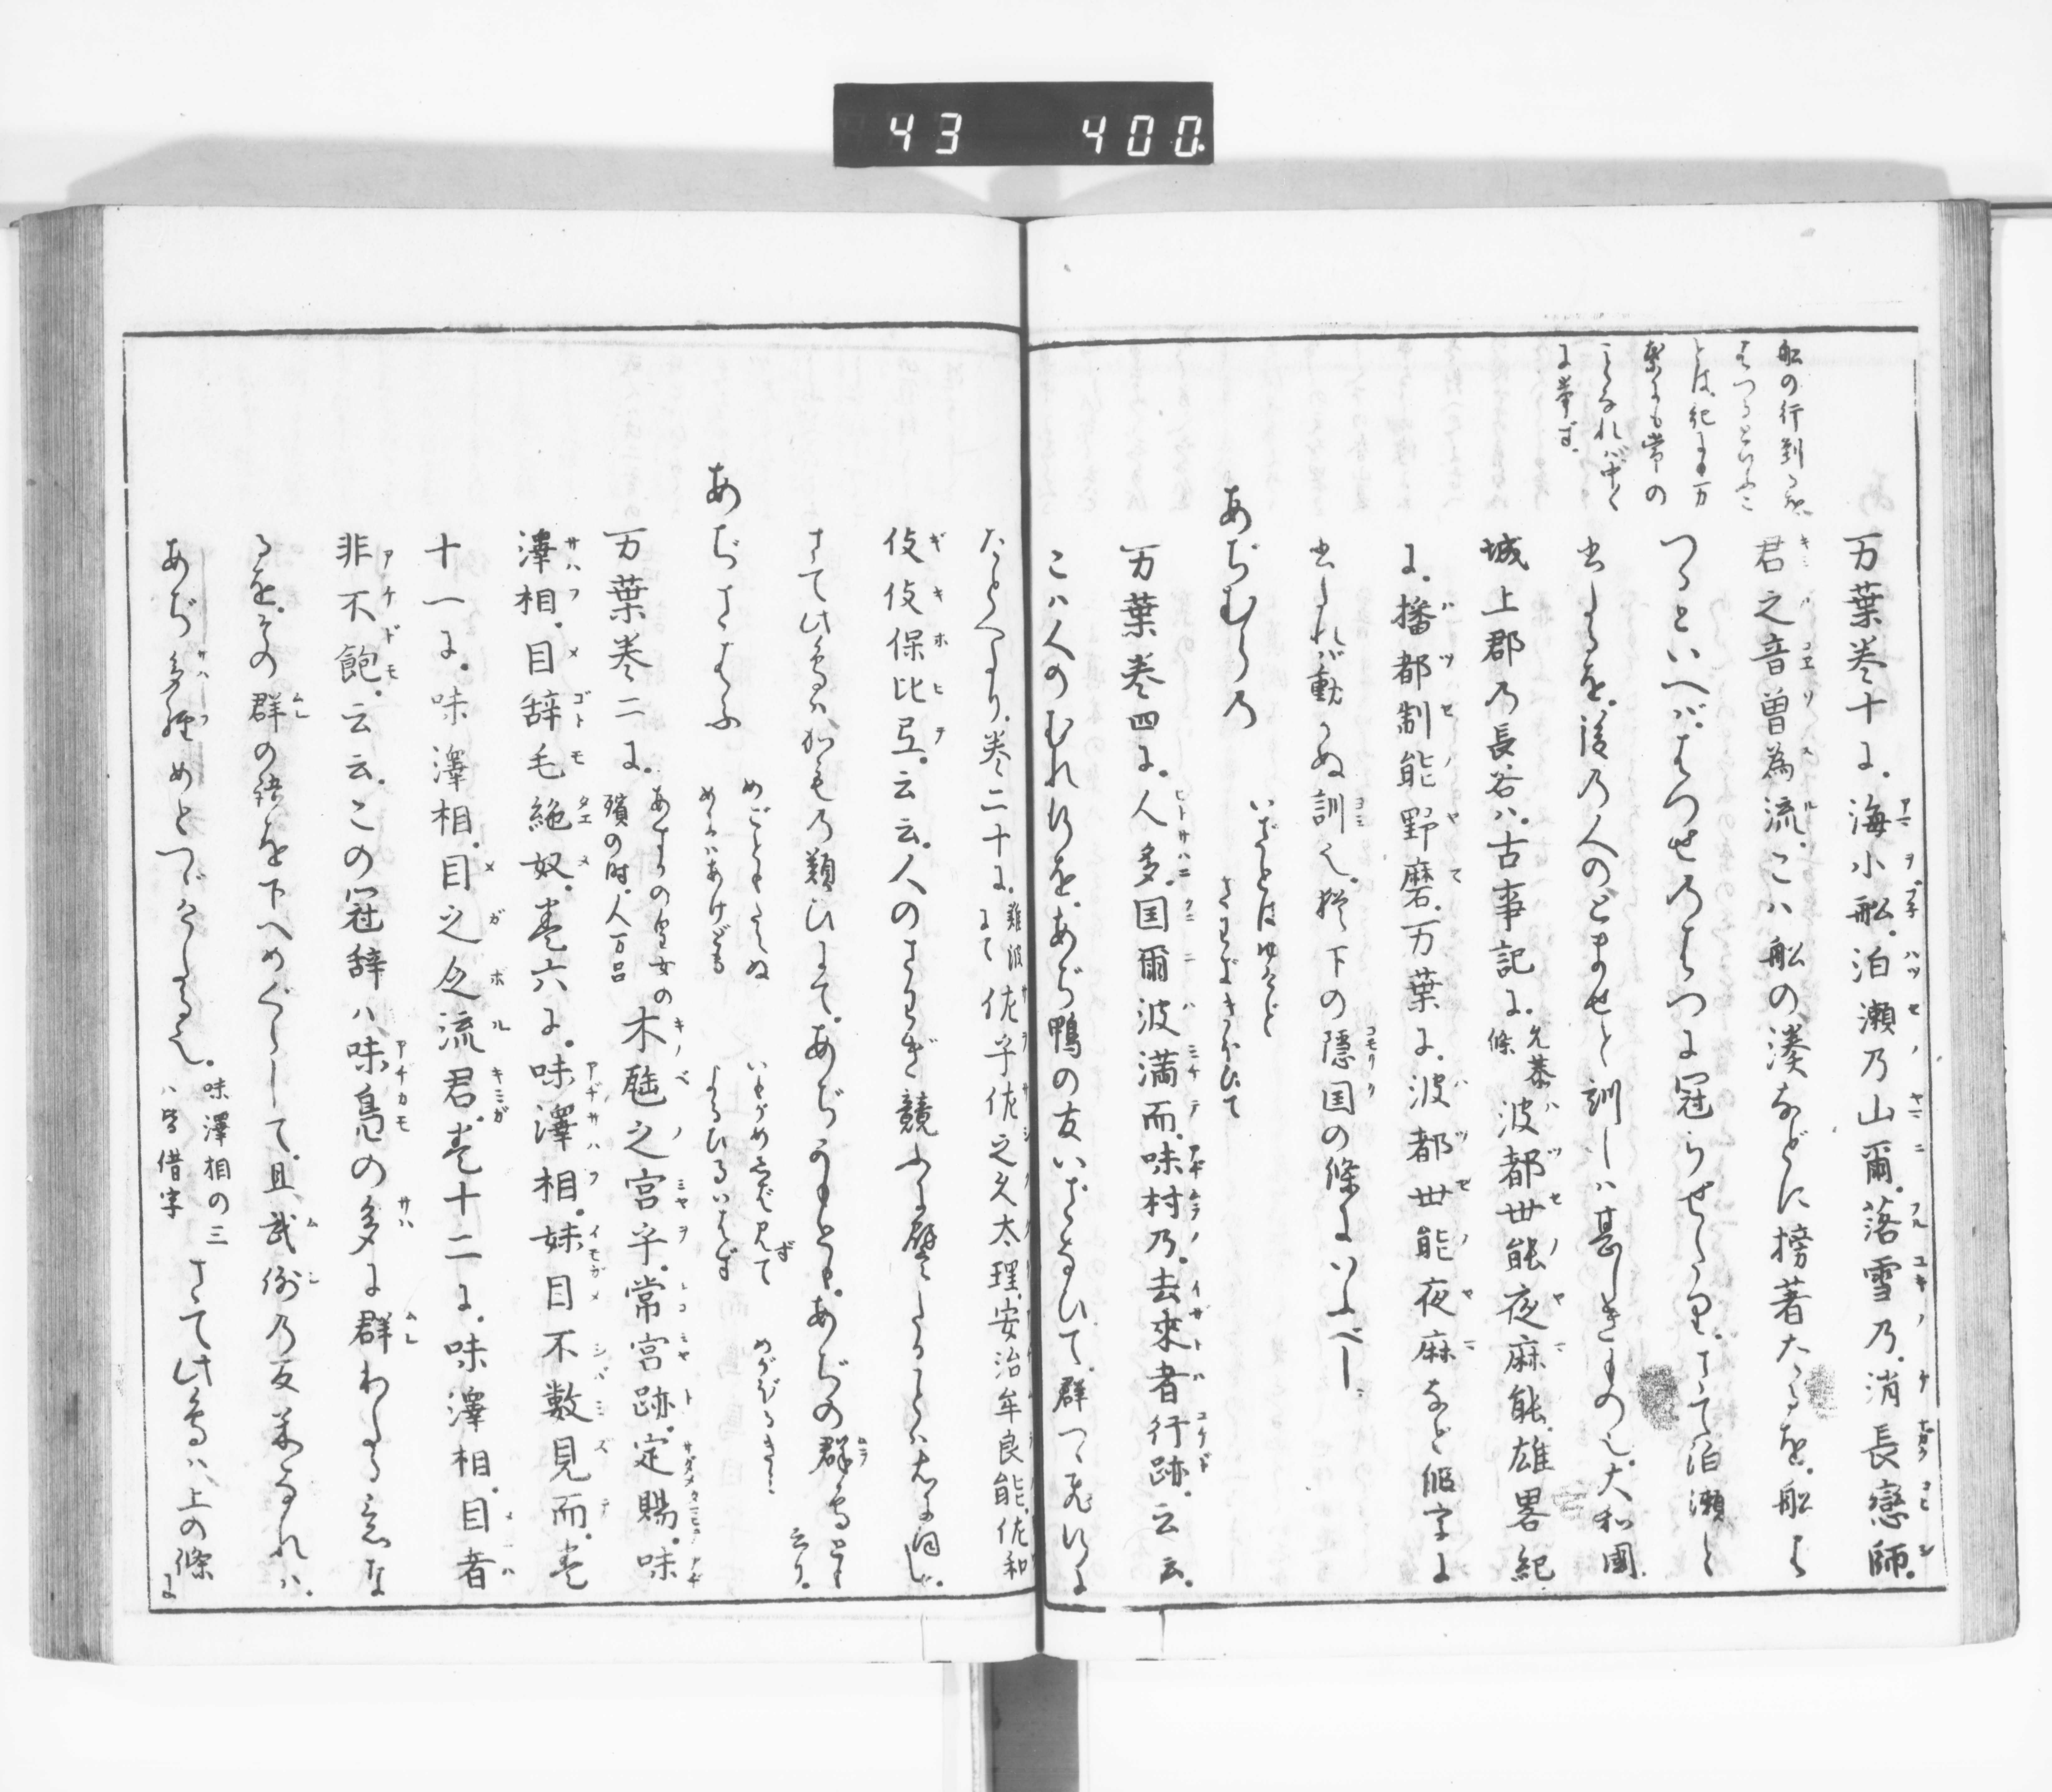 43 400.
船の行到るを、
はつるといふこ
とは、紀にも万
葉にも常の
ことなれバ、中〻
に挙ず、
万葉巻十に、海小船、泊瀬乃山爾、落雪乃、消長戀師、
君之音曽為流、こハ船の、湊などに榜著たるを、船は
つるといへバ、はつせのはつに冠らせたり、さて泊瀬と
出したるを、後乃人のとませと訓しハ甚しきもの也、大和國
城上郡乃長谷ハ、古事記に、允恭條 波都世能夜麻能、雄畧紀
に、播都制能野磨、万葉に、波都世能夜麻など假字に
出したれバ動かぬ訓也、猶下の隠国の條にいふべし、
あぢむらの
いざとはゆけど
さわぎきほひて
万葉巻四に、人多、国爾波満而、味村乃、去來者行跡、云云、
こハ人のむれ行を、あぢ鴨の友いざなひて、群つゝ飛行に
たとへたり、巻二十に、難波にて 佐乎佐之久太理、安治牟良能、佐和
伎伎保比弖、云云、人のさわぎ競ふに譬たることハ右に同じ、
さて此鳥ハ、かもの類ひにて、あぢかもとも、あぢの群鳥とも云り、
あぢさはふ
めごともたえぬ
めにハあけども
いもがめしばみずて
よるひるいはず
めがほるきみ
万葉巻二に、あすかの皇女の殯の时、人万呂 木𤭖之宮乎、常宮跡、定賜、味
澤相、目辞毛絶奴、巻六に、味澤相、妹目不數見而、巻
十一に、味澤相、目之乏流君、巻十二に、味澤相、目者
非不飽、云云、この冠辞ハ、味鳧の多に群わたる意な
るを、その群の語を下へめぐらして、且武例乃反米なれハ、
あぢ多経めとつゞけしなるべし、味澤相の三ハ皆借字 さて此鳥ハ、上の條に